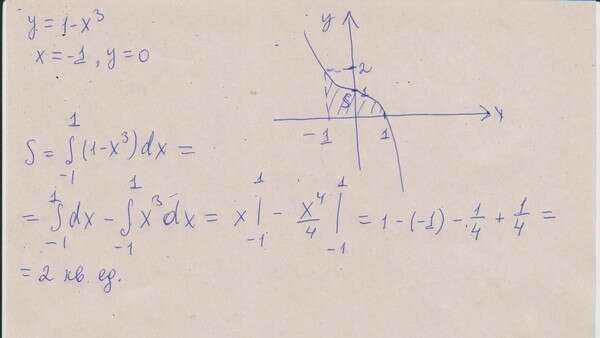 y = 1-x³
x = -1, y = 0
y
2
1
S
-1
1
x
S = ∫₋₁¹ (1-x³) dx =
= ∫₋₁¹ dx - ∫₋₁¹ x³ dx = x |₋₁¹ - x⁴/4 |₋₁¹ = 1 - (-1) - 1/4 + 1/4 =
= 2 кв. ед.